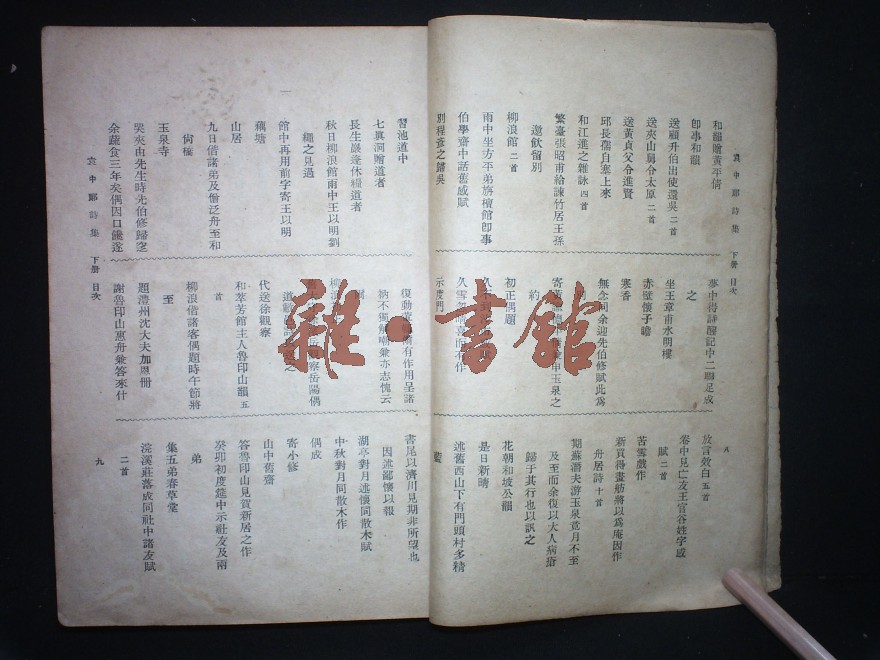 袁中郎詩集 下册 目次
八
和韻贈黃平倩
卽事和韻
送顧升伯出使還吳 二首
送夾山舅令太原 二首
送黃貞父令進賢
邱長孺自塞上來
和江進之雜詠 四首
繁臺張昭甫給諫竹居王孫
邀飲留別
柳浪館 二首
雨中坐方平弟旃檀館卽事
伯學齋中話舊感賦
別程彥之歸吳
夢中得詩醒記中二聯足成
之
坐王章甫水明樓
赤壁懷子瞻
寒香
無念同余迎先伯修賦此爲
初正偶題
示度門
放言效白 五首
卷中見亡友王官谷姓字感
賦 二首
苦雪戲作
新買得畫舫將以爲庵因作
舟居詩 十首
期蘇潛夫游玉泉竟月不至
及至而余復以大人病瘡
歸于其行也以訊之
花朝和坡公韻
是日新晴
述舊西山下有門頭村多精
藍
習池道中
七眞洞贈道者
長生巖逢休糧道者
秋日柳浪館南中王以明劉
繩之見過
館中再用前字寄王以明
藕塘
山居
九日偕諸弟及僧泛舟至和
尙橋
玉泉寺
哭夾山先生時先伯修歸窆
余蔬食三年矣偶因口饞遂
有作用呈諸
衲不獨解嘲兼亦志愧云
岳陽偶
代送徐觀察
和萃芳館主人魯印山韻 五
首
柳浪偕諸客偶題時午節將
至
題澧州沈大夫加恩冊
謝魯印山惠舟兼答來什
書尾以濟川見期非所望也
因述鄙懷以報
湖亭對月述懷同散木賦
中秋對月同散木作
偶成
寄小修
山中舊齋
答魯印山見賀新居之作
癸卯初度筵中示社友及兩
弟
集五弟春草堂
浣溪莊落成同社中諸友賦
二首
袁中郎詩集 下册 目次
九
雜·書館